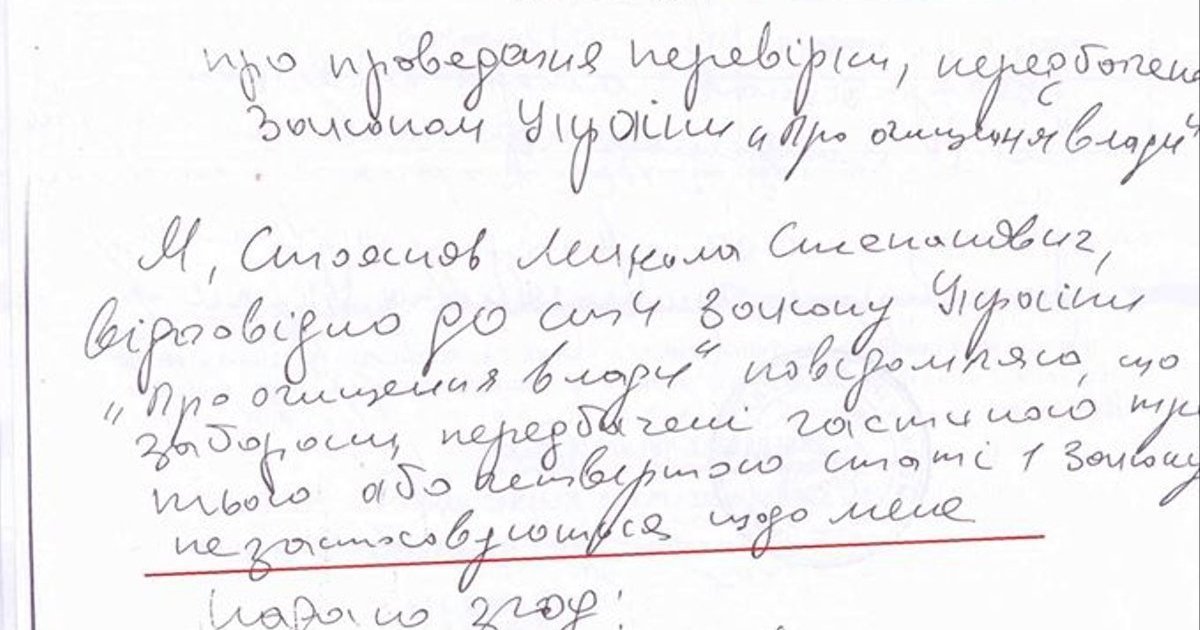 про проведення перевірки, передбачена
Законом України „Про очищення влади“
Я, Стоянов Микола Степанович,
відповідно до ст. 4 Закону України
„Про очищення влади“ повідомляю, що
заборони, передбачені частиною тре
тьою або четвертою статті 1 Закону
не застосовуються щодо мене
Надаю згоду: